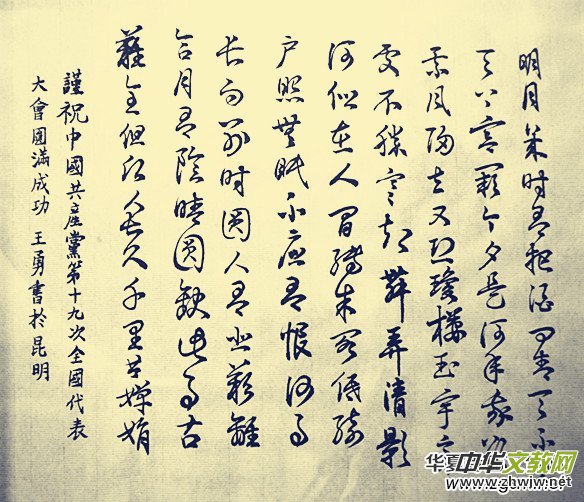 明月幾时有把酒问青天不
天上宫阙今夕是何年我欲
乘风归去又恐瓊楼玉宇高
处不勝寒起舞弄清影
何似在人间转朱阁低绮
户照無眠不应有恨何事
长向别时圆人有悲歡離
合月有陰晴圆缺此事古
難全但愿人长久千里共嬋娟
謹祝中國共產黨第十九次全國代表
大會圓滿成功 王勇書於昆明
华夏
中华文教网